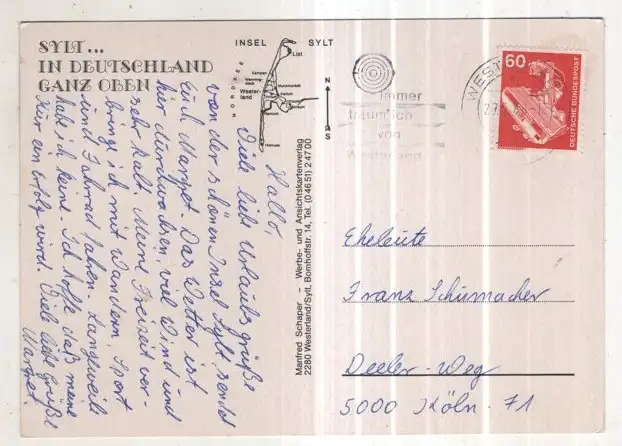 SYLT...
IN DEUTSCHLAND
GANZ OBEN
INSEL SYLT
List
Kampen
Westerland
Hörnum
N
S
Hallo
Viele liebe Urlaubsgrüße
von der schönen Insel Sylt sendet
Euch Margret. Das Wetter ist
hier durchwachsen, viel Wind und
sehr kalt. Meine Freizeit ver-
bringe ich mit Wandern, Sport
und Fahrrad fahren. Langeweile
habe ich keine. Ich hoffe daß meine
Kur ein Erfolg wird. Viele liebe Grüße
Margret.
Manfred Schaper - Werbe- und Ansichtskartenverlag
2280 Westerland/Sylt, Bomhoffstr. 14, Tel. (0 46 51) 2 47 00
WEST
Immer
von
60
DEUTSCHE BUNDESPOST
Eheleute
Franz Schumacher
Deeler-Weg
5000 Köln-71